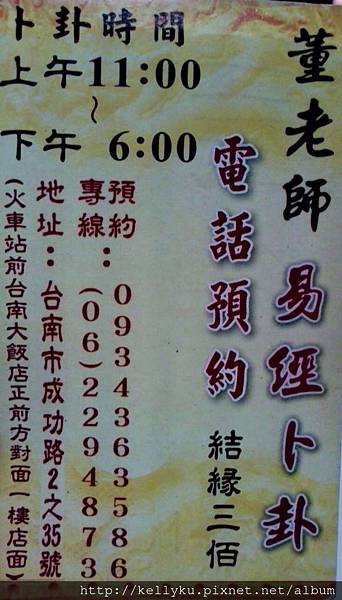 董老師易經卜卦
電話預約 結緣三佰
卜卦時間
上午11:00
~
下午 6:00
預約:0934363586
專線:(06)2294873
地址:台南市成功路2之35號
(火車站前台南大飯店正前方對面一樓店面)
http://kellyku.pixnet.net/album